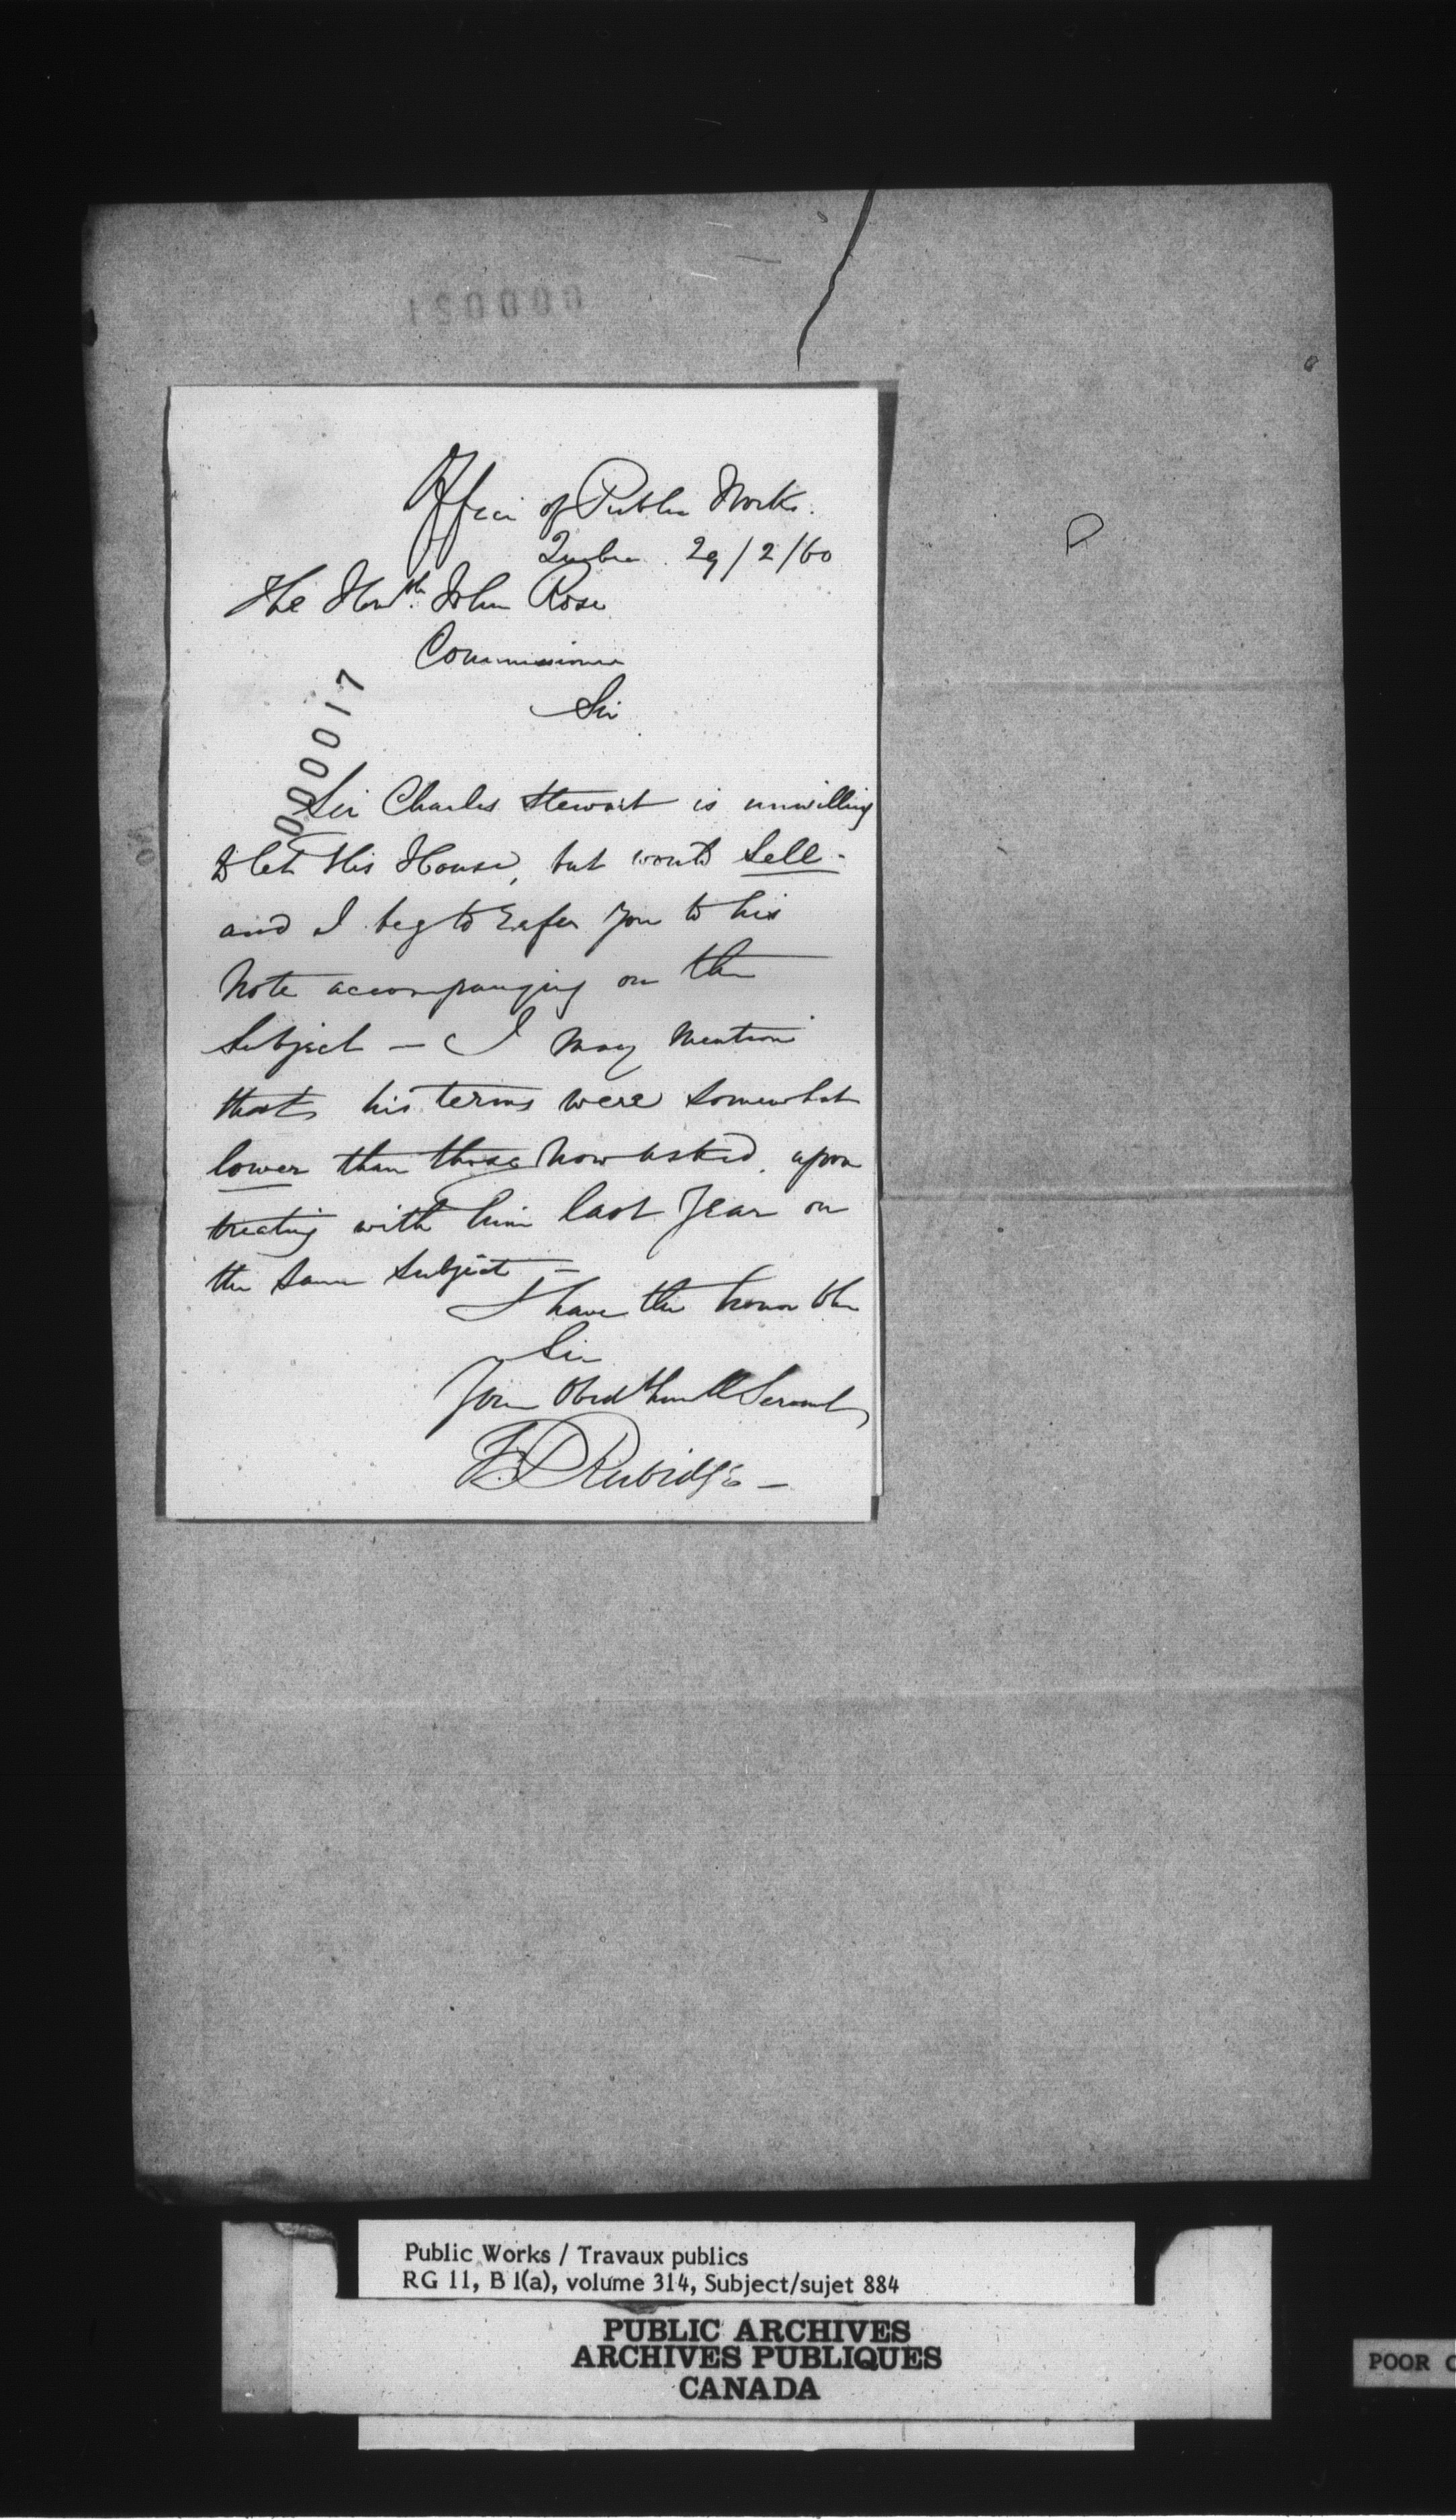 000051
Office of Public Works.
Quebec 29/2/60
The Honble. John Rose
Commissioner
Sir
000017
Sir Charles Stewart is unwilling
to let His House, but would Sell -
and I beg to refer you to his
Note accompanying on the
Subject — I may mention
that his terms were somewhat
lower than those now asked, upon
treating with him last year on
the same subject —
I have the honor to be
Sir
Your Obed humbl Servant
F. P. Rubidge —
Public Works / Travaux publics
RG 11, B 1(a), volume 314, Subject/sujet 884
PUBLIC ARCHIVES
ARCHIVES PUBLIQUES
CANADA
POOR